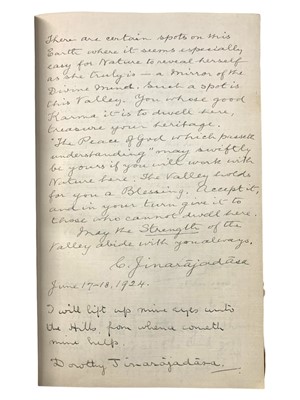 There are certain spots on this
Earth where it seems especially
easy for Nature to reveal herself
as she truly is — a Mirror of the
Divine Mind. Such a spot is
this Valley. You whose good
Karma it is to dwell here,
treasure your heritage.
"The Peace of God which passeth
understanding" may swiftly
be yours if you will work with
Nature here. The Valley holds
for you a Blessing. Accept it,
and in your turn give it to
those who cannot dwell here.
May the Strength of the
Valley abide with you always.
C. Jinarājadāsa
June 17-18, 1924.
I will lift up mine eyes unto
the Hills, from whence cometh
mine help.
Dorothy Jinarājadāsa.